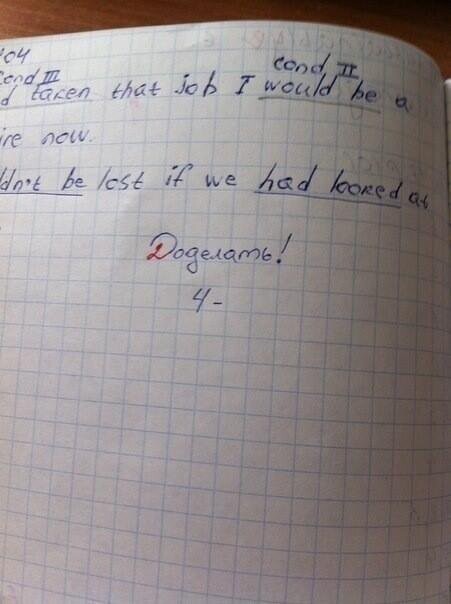 404
Cond III cond II
d taken that job I would be a
ire now.
ldn't be lost if we had looked at
Доделать!
4-